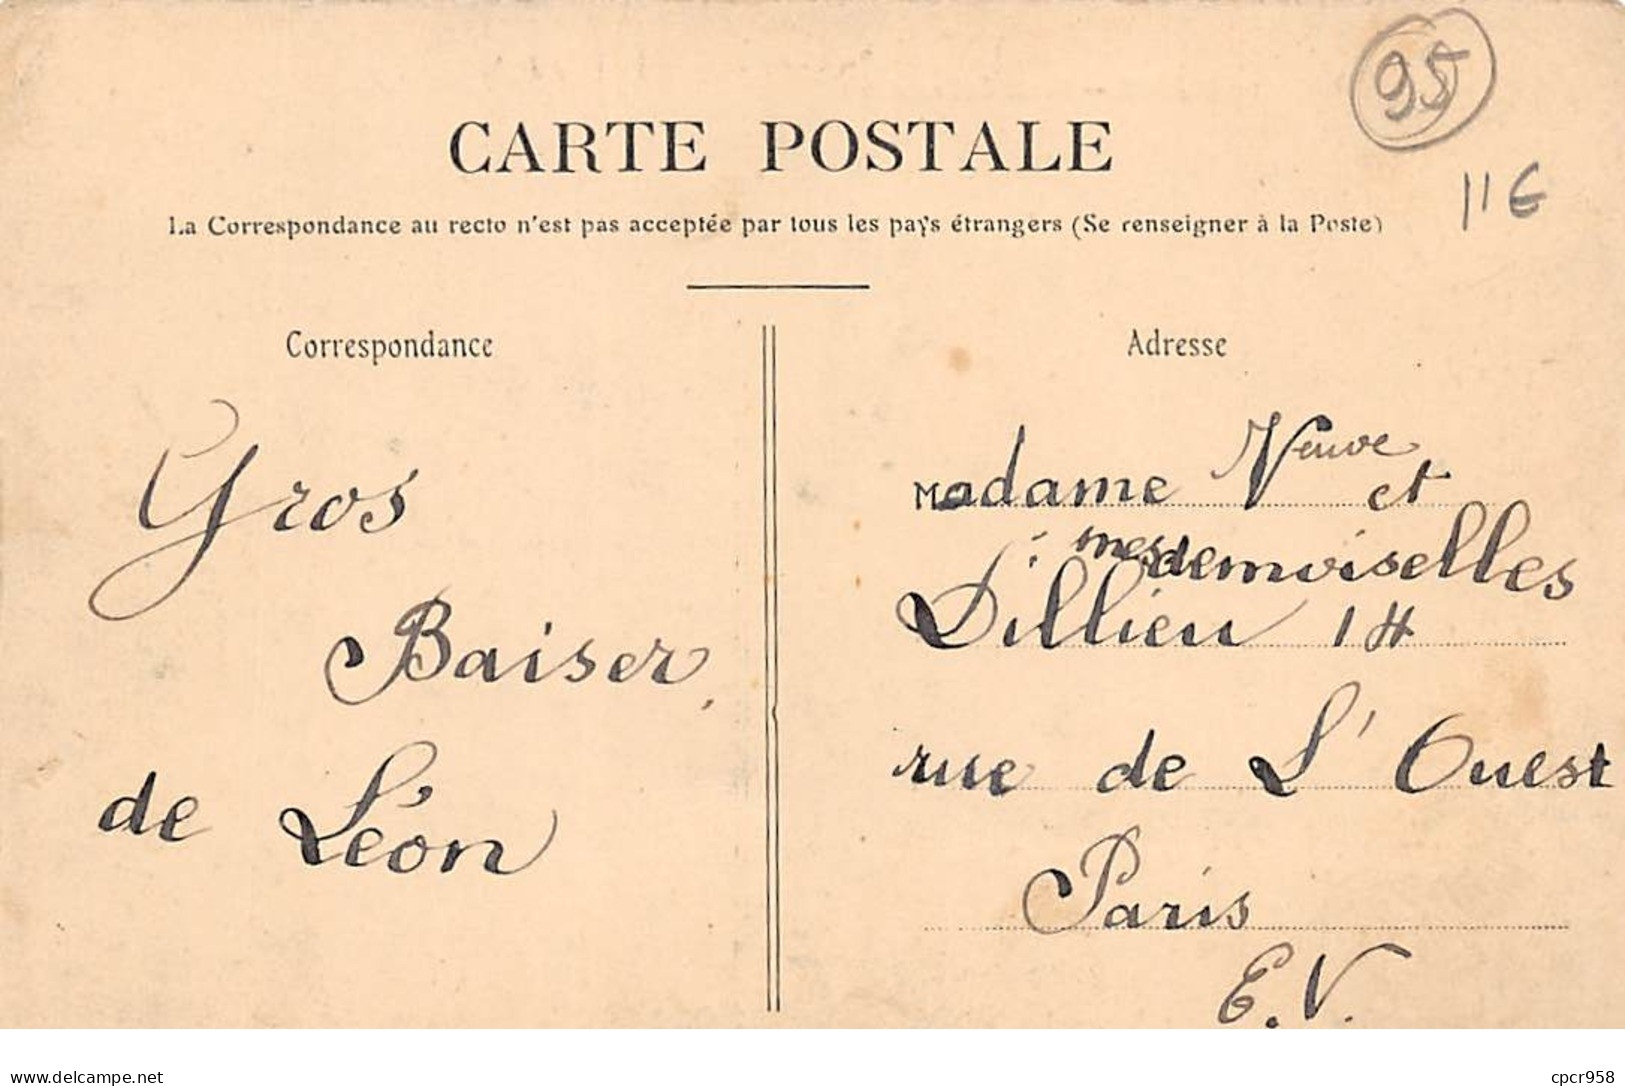 95
11€
CARTE POSTALE
La Correspondance au recto n'est pas acceptée par tous les pays étrangers (Se renseigner à la Poste)
Correspondance
Gros
Baiser
de Léon
Adresse
Madame Veuve et
mesdemoiselles
Dillieu 14
rue de L'Ouest
Paris
E.V.
www.delcampe.net
cpcr958